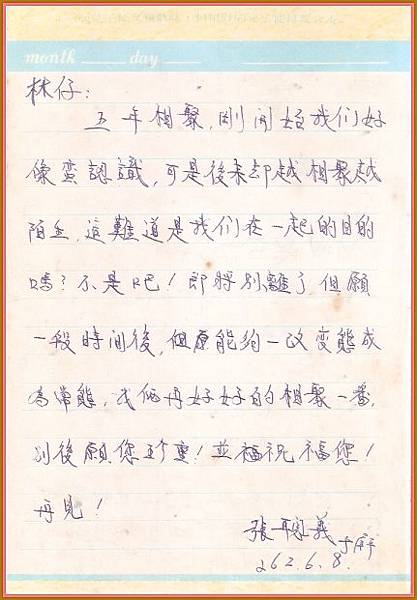 month day
林仔：
五年相聚，剛開始我们好
像蛮認識，可是後來却越相聚越
陌生，這難道是我们在一起的目的
嗎？不是吧！即將別離了，但願
一段時間後，但愿能夠一改变態成
為常態，我俩再好好的相聚一番，
別後願您珍重！並福祝福您！
再見！
張聰義
62.6.8.